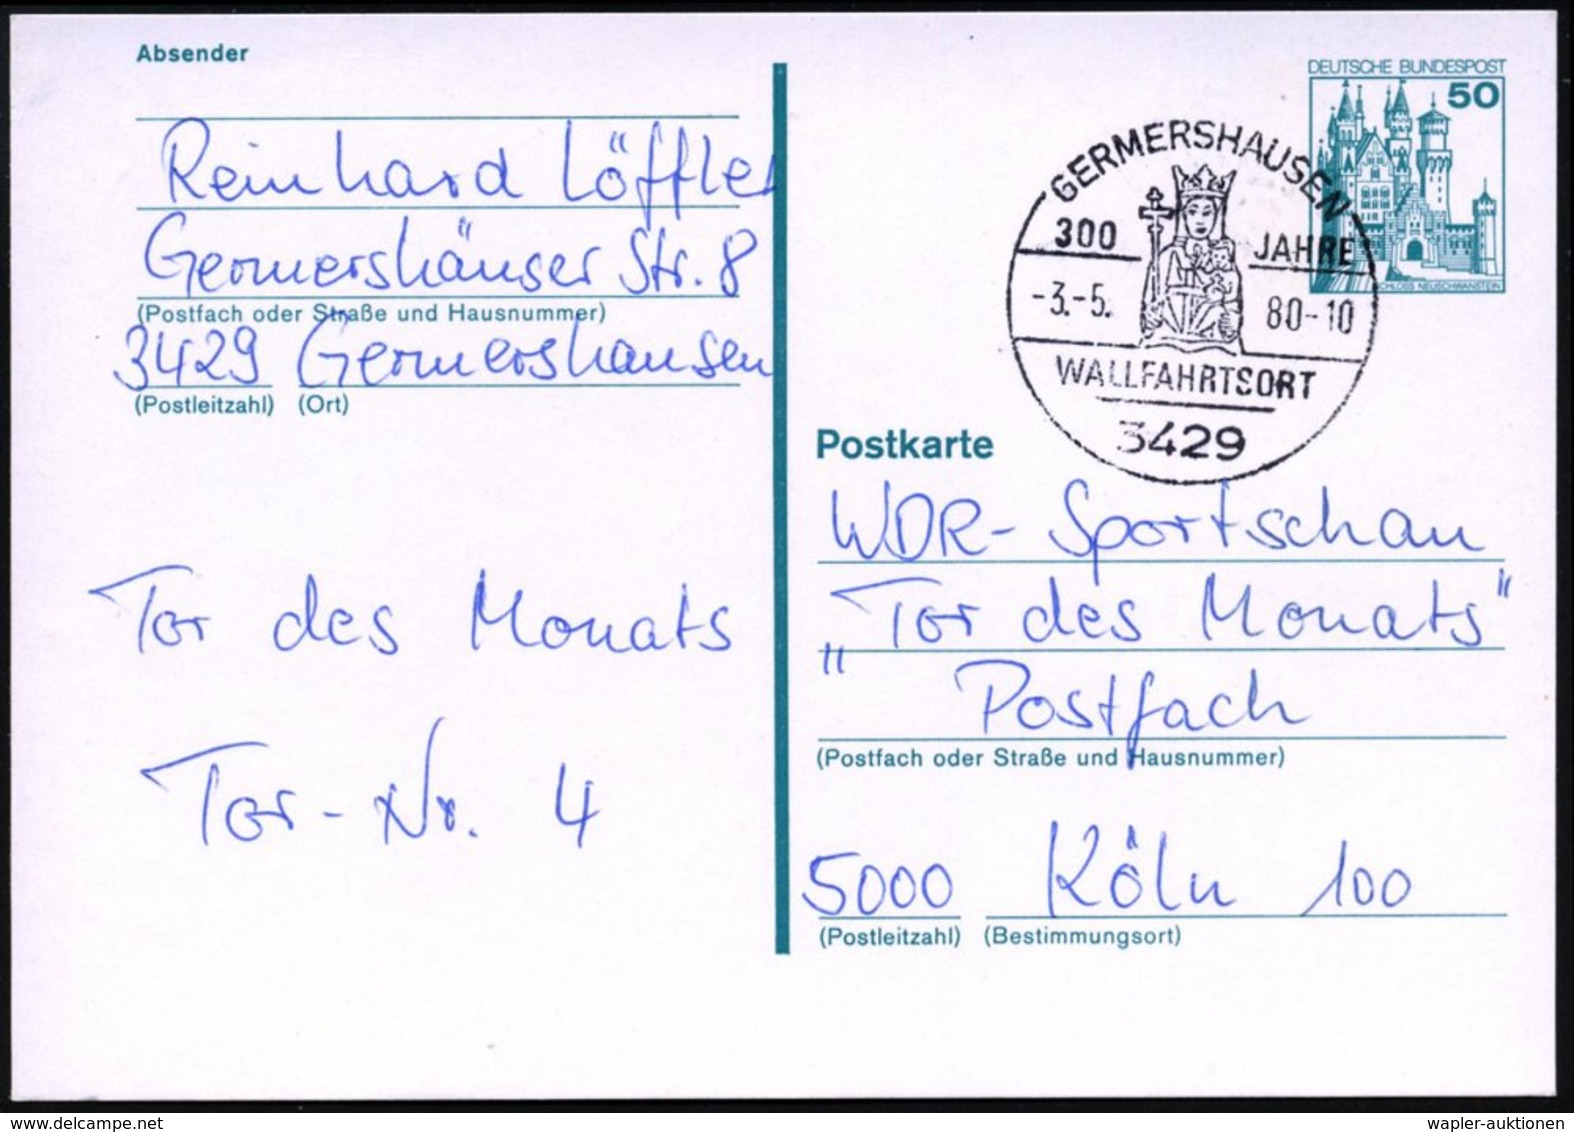 Absender
Reinhard Löffler
Germershäuser Str. 8
(Postfach oder Straße und Hausnummer)
3429 Germershausen
(Postleitzahl) (Ort)
Tor des Monats
Tor-Nr. 4
DEUTSCHE BUNDESPOST
50
SCHLOSS NEUSCHWANSTEIN
GERMERSHAUSEN
300 JAHRE
-3.-5. 80-10
WALLFAHRTSORT
3429
Postkarte
WDR- Sportschau
„Tor des Monats"
Postfach
(Postfach oder Straße und Hausnummer)
5000 Köln 100
(Postleitzahl) (Bestimmungsort)
wapler-auktionen